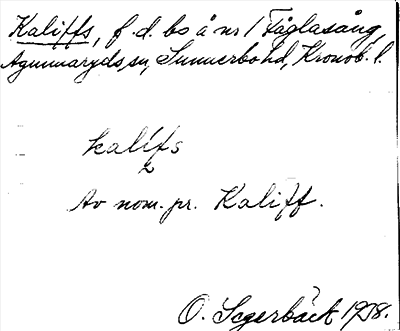 Kaliffs, f.d. bo å nr 1 Fåglasång,
Agunnaryds sn, Sunnerbo hd, Kronob. l.
kalifs
2
Av nom. pr. Kaliff.
O. Segerbäck 1938.